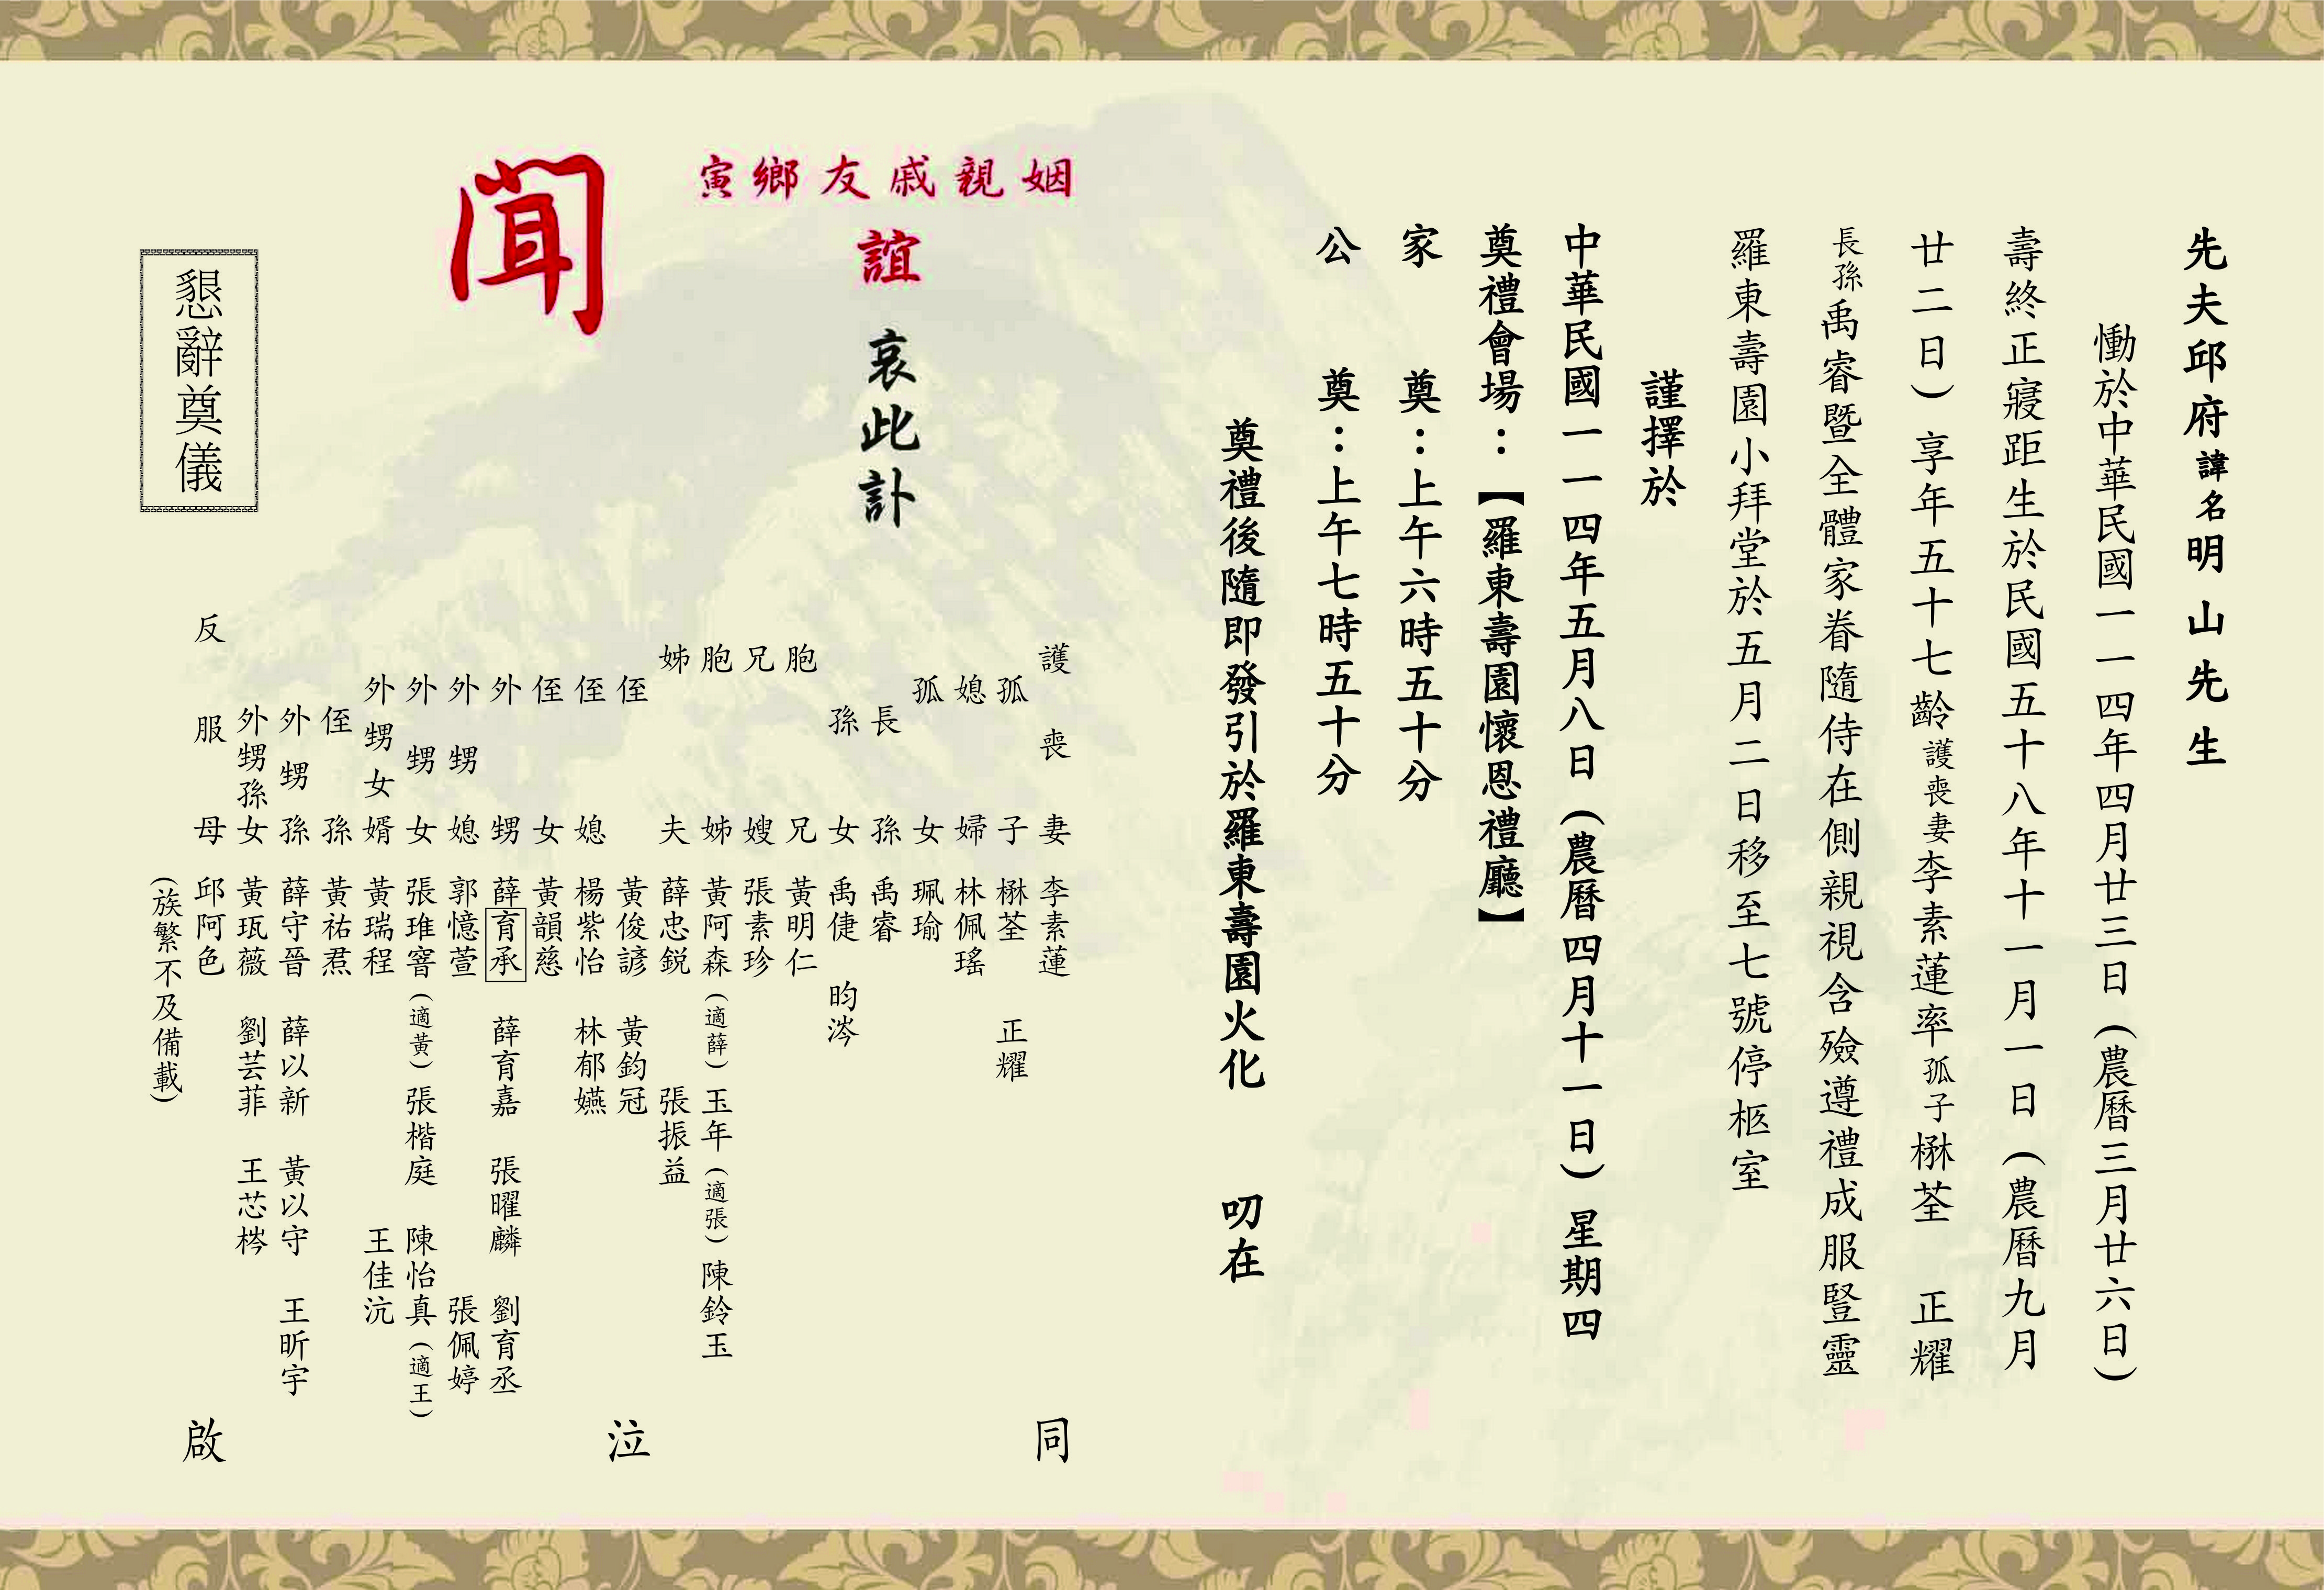 先夫邱府諱名明山先生
慟於中華民國一一四年四月廿三日（農曆三月廿六日）
壽終正寢距生於民國五十八年十一月一日（農曆九月
廿二日）享年五十七齡護喪妻李素蓮率孤子楙荃　正耀
長孫禹睿暨全體家眷隨侍在側親視含殮遵禮成服豎靈
羅東壽園小拜堂於五月二日移至七號停柩室
謹擇於
中華民國一一四年五月八日（農曆四月十一日）星期四
奠禮會場：【羅東壽園懷恩禮廳】
家　奠：上午六時五十分
公　奠：上午七時五十分
奠禮後隨即發引於羅東壽園火化　叨在
姻親戚友鄉寅
誼
哀此訃
聞
護喪妻　李素蓮
孤子　楙荃　正耀
媳婦　林佩瑤
孤女　珮瑜
長孫　禹睿
孫女　禹倢　昀涔
胞兄　黃明仁
兄嫂　張素珍
胞姊　黃阿森（適薛）玉年（適張）陳鈴玉
姊夫　薛忠銳　張振益
侄　黃俊諺　黃鈞冠
侄媳　楊紫怡　林郁嬿
侄女　黃韻慈
外甥　薛育承　薛育嘉　張曜麟　劉育丞
外甥媳　郭憶萱　張佩婷
外甥女　張琟窨（適黃）張楷庭　陳怡真（適王）
外甥女婿　黃瑞程　王佳沆
侄孫　黃祐焄
外甥孫　薛守晉　薛以新　黃以守　王昕宇
外甥孫女　黃珁薇　劉芸菲　王芯梣
反服母　邱阿色
（族繁不及備載）
同　泣　啟
懇辭奠儀